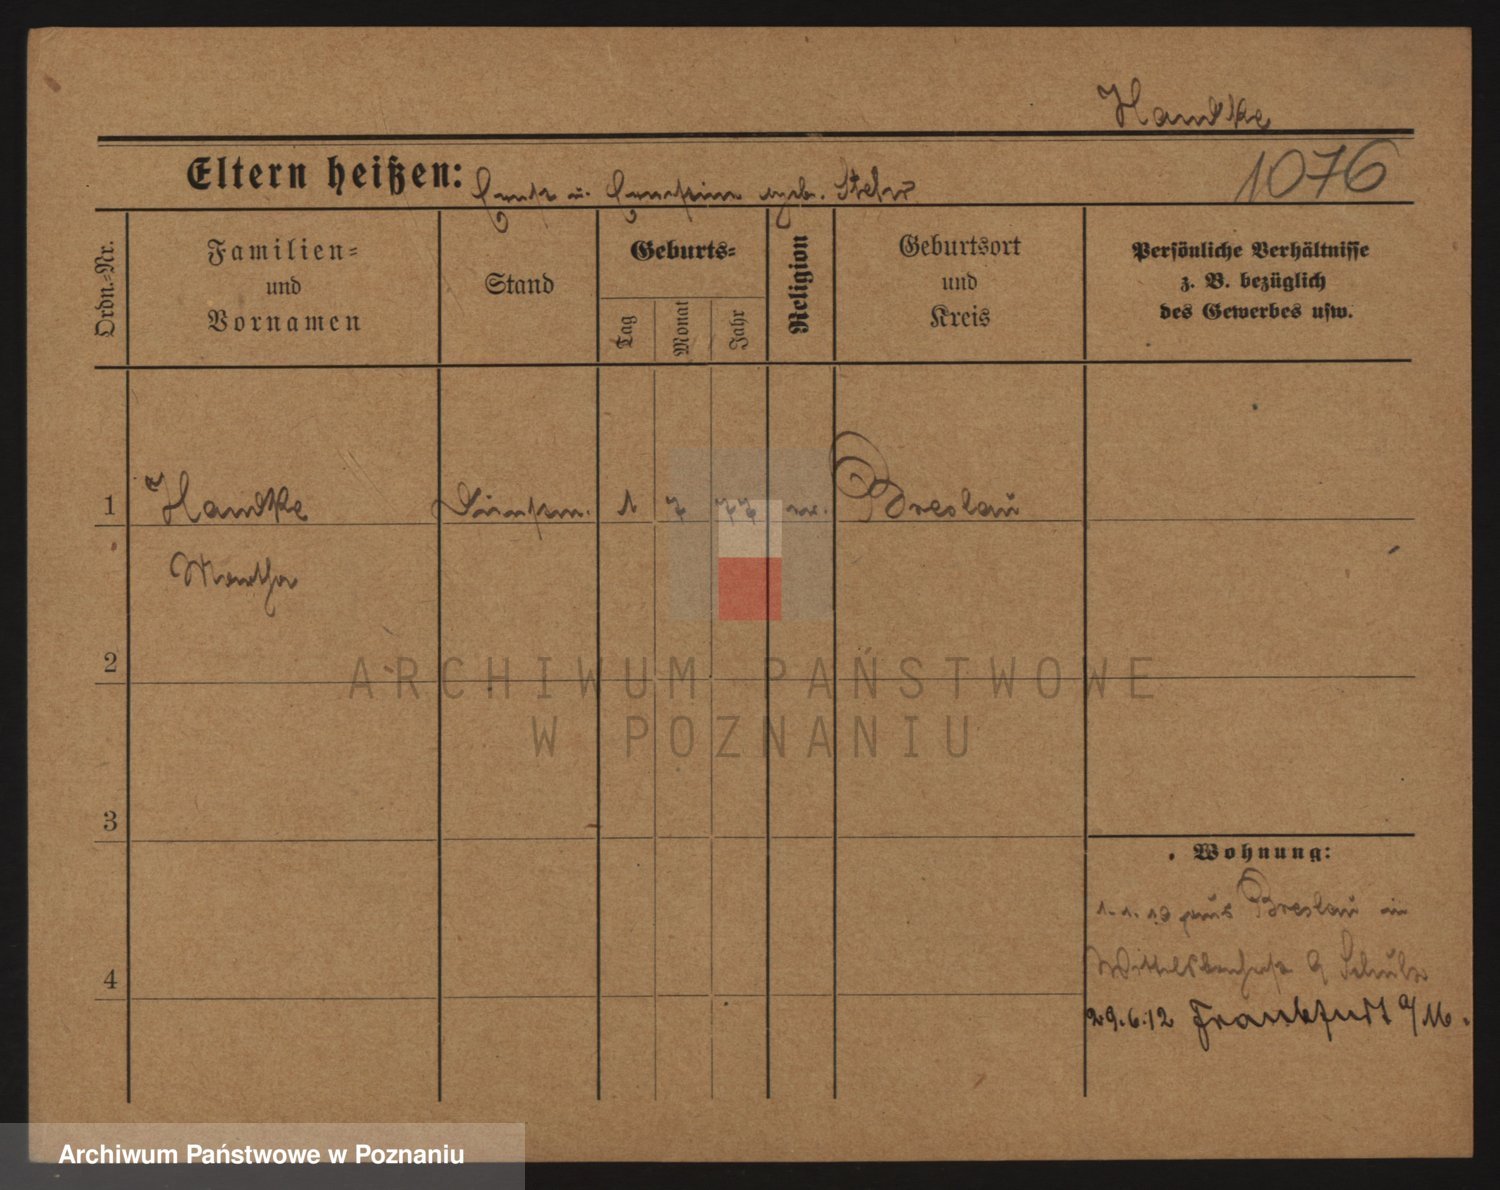 Handke
Eltern heißen: u. geb.
1076
Ordn.-Nr.
Familien-
und
Vornamen
Stand
Geburts-
Tag
Monat
Jahr
Religion
Geburtsort
und
Kreis
Persönliche Verhältnisse
z. B. bezüglich
des Gewerbes usw.
1 Handke 1 7 77 Breslau
Martha
2
3
4
Wohnung:
aus Breslau in
29.6.12 Frankfurt a/M.
ARCHIWUM PAŃSTWOWE
W POZNANIU
Archiwum Państwowe w Poznaniu